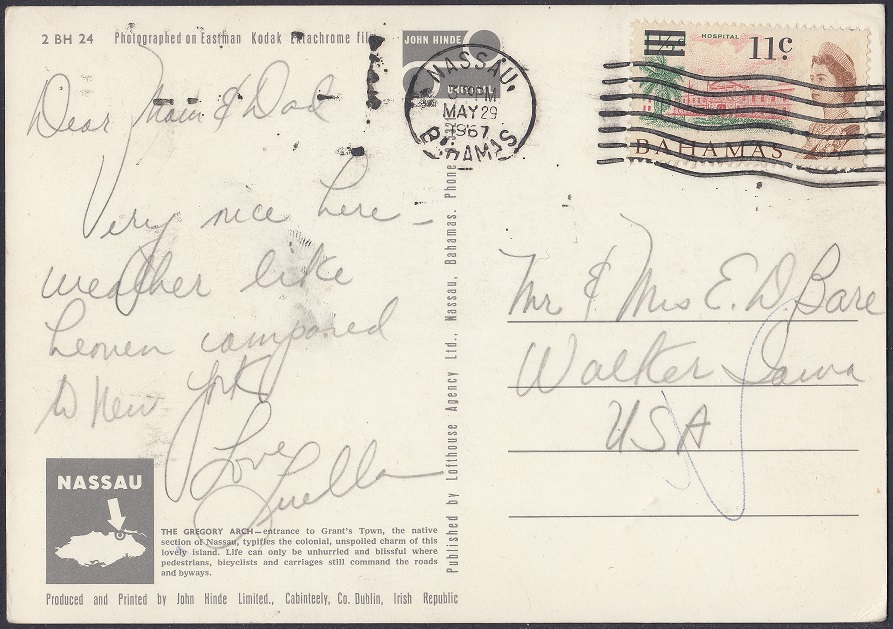 2 BH 24 Photographed on Eastman Kodak Ektachrome film
JOHN HINDE
ORIGINAL
NASSAU,
PM
MAY 29
1967
BAHAMAS
HOSPITAL
11c
BAHAMAS
Dear Mom & Dad
Very nice here -
weather like
heaven compared
to New York
Love
Luella
Mr & Mrs E. D. Bare
Walker Iowa
USA
Published by Lofthouse Agency Ltd., Nassau, Bahamas. Phone
NASSAU
THE GREGORY ARCH—entrance to Grant's Town, the native
section of Nassau, typifies the colonial, unspoiled charm of this
lovely island. Life can only be unhurried and blissful where
pedestrians, bicyclists and carriages still command the roads
and byways.
Produced and Printed by John Hinde Limited., Cabinteely, Co. Dublin, Irish Republic